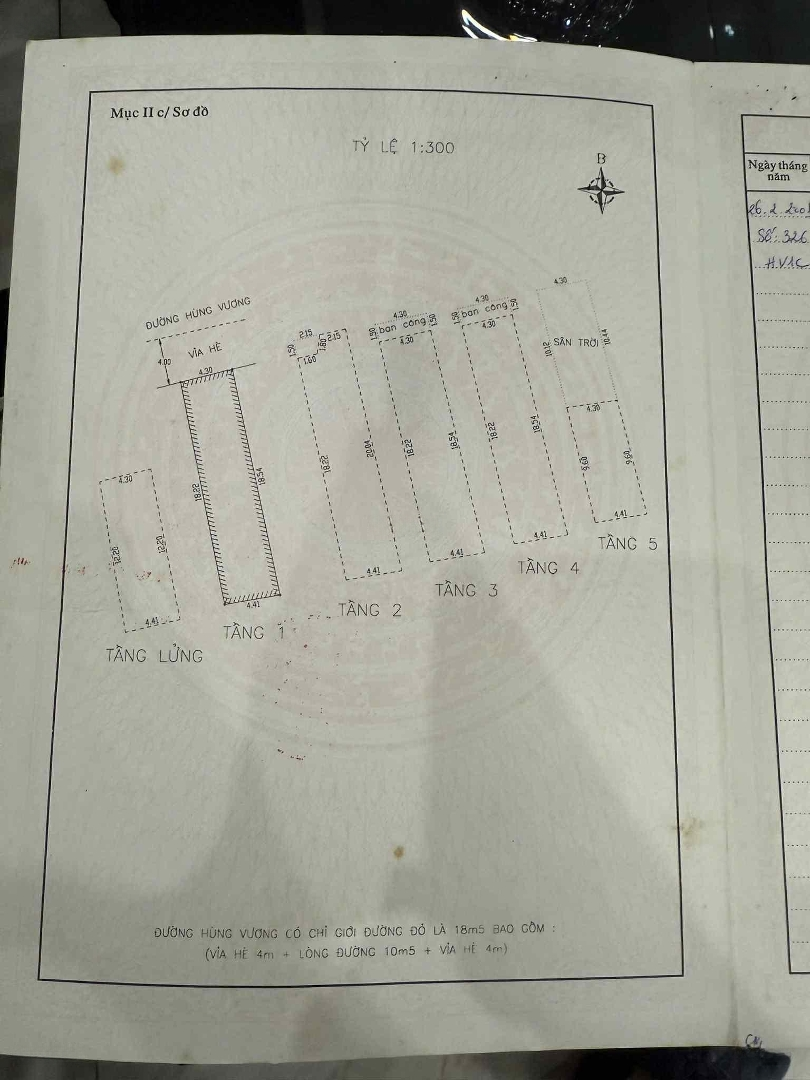 Mục II c/ Sơ đồ
TỶ LỆ 1:300
B
Ngày tháng
năm
26.2.200
Số: 326
ĐƯỜNG HÙNG VƯƠNG
4.00
VỈA HÈ
4.30
18.22
18.54
4.41
TẦNG 1
4.30
12.20
12.20
4.41
TẦNG LỬNG
2.15
1.50
1.80
2.15
1.60
18.22
20.04
4.41
TẦNG 2
4.30
1.50
ban công
1.50
4.30
18.22
18.54
4.41
TẦNG 3
4.30
1.50
ban công
1.50
4.30
18.22
18.54
4.41
TẦNG 4
4.30
10.12
SÂN TRỜI
10.44
4.30
9.60
9.60
4.41
TẦNG 5
ĐƯỜNG HÙNG VƯƠNG CÓ CHỈ GIỚI ĐƯỜNG ĐỎ LÀ 18m5 BAO GỒM :
(VỈA HÈ 4m + LÒNG ĐƯỜNG 10m5 + VỈA HÈ 4m)